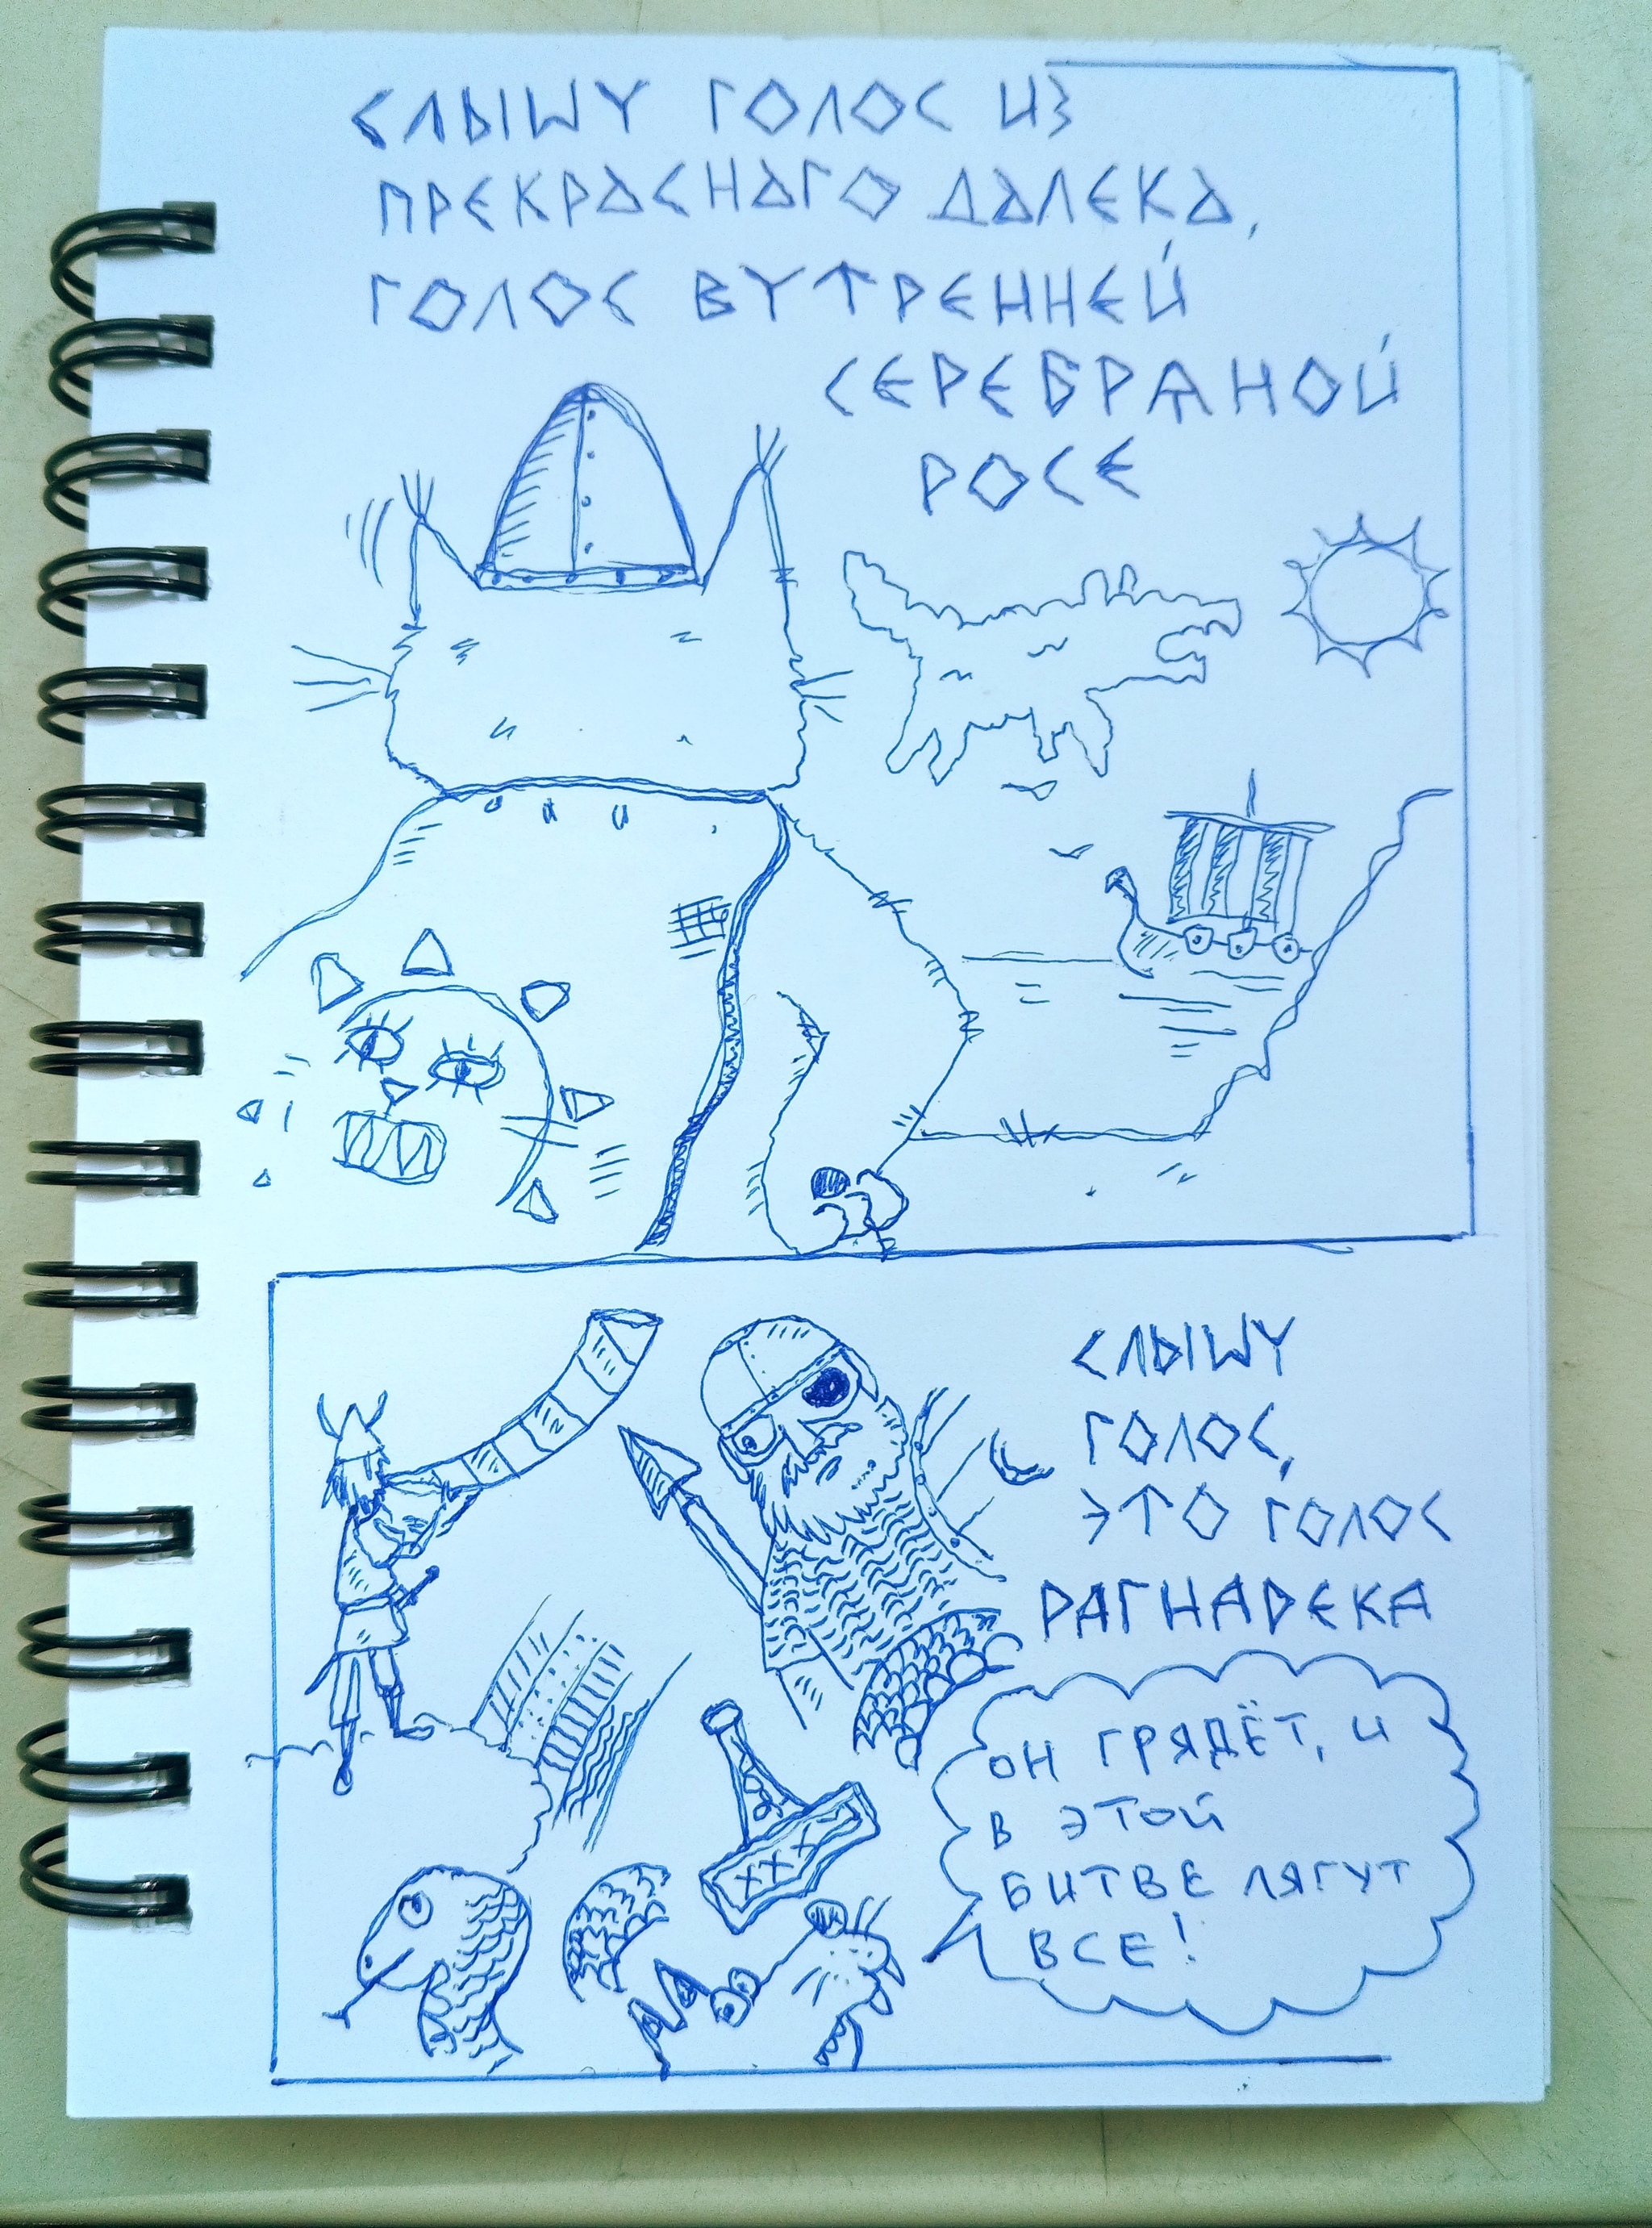 СЛЫШУ ГОЛОС ИЗ
ПРЕКРАСНАГО ДАЛЕКА,
ГОЛОС В УТРЕННЕЙ
СЕРЕБРѦНОЙ
РОСЕ
СЛЫШУ
ГОЛОС,
ЭТО ГОЛОС
РАГНАРЕКА
ОН ГРЯДЁТ, И
В ЭТОЙ
БИТВЕ ЛЯГУТ
ВСЕ!